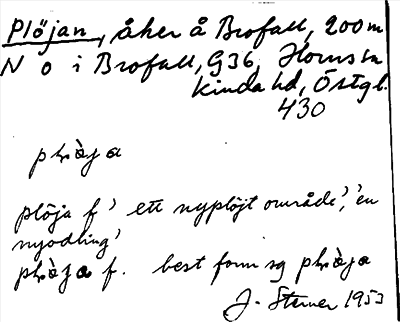 Plöjan, åker å Brofall, 200 m
N o i Brofall, G36, Horns sn
Kinda hd, Östgl.
430
plöja f' ett nyplöjt område', 'en
nyodling'
f. best form sg
J. Sterner 1953